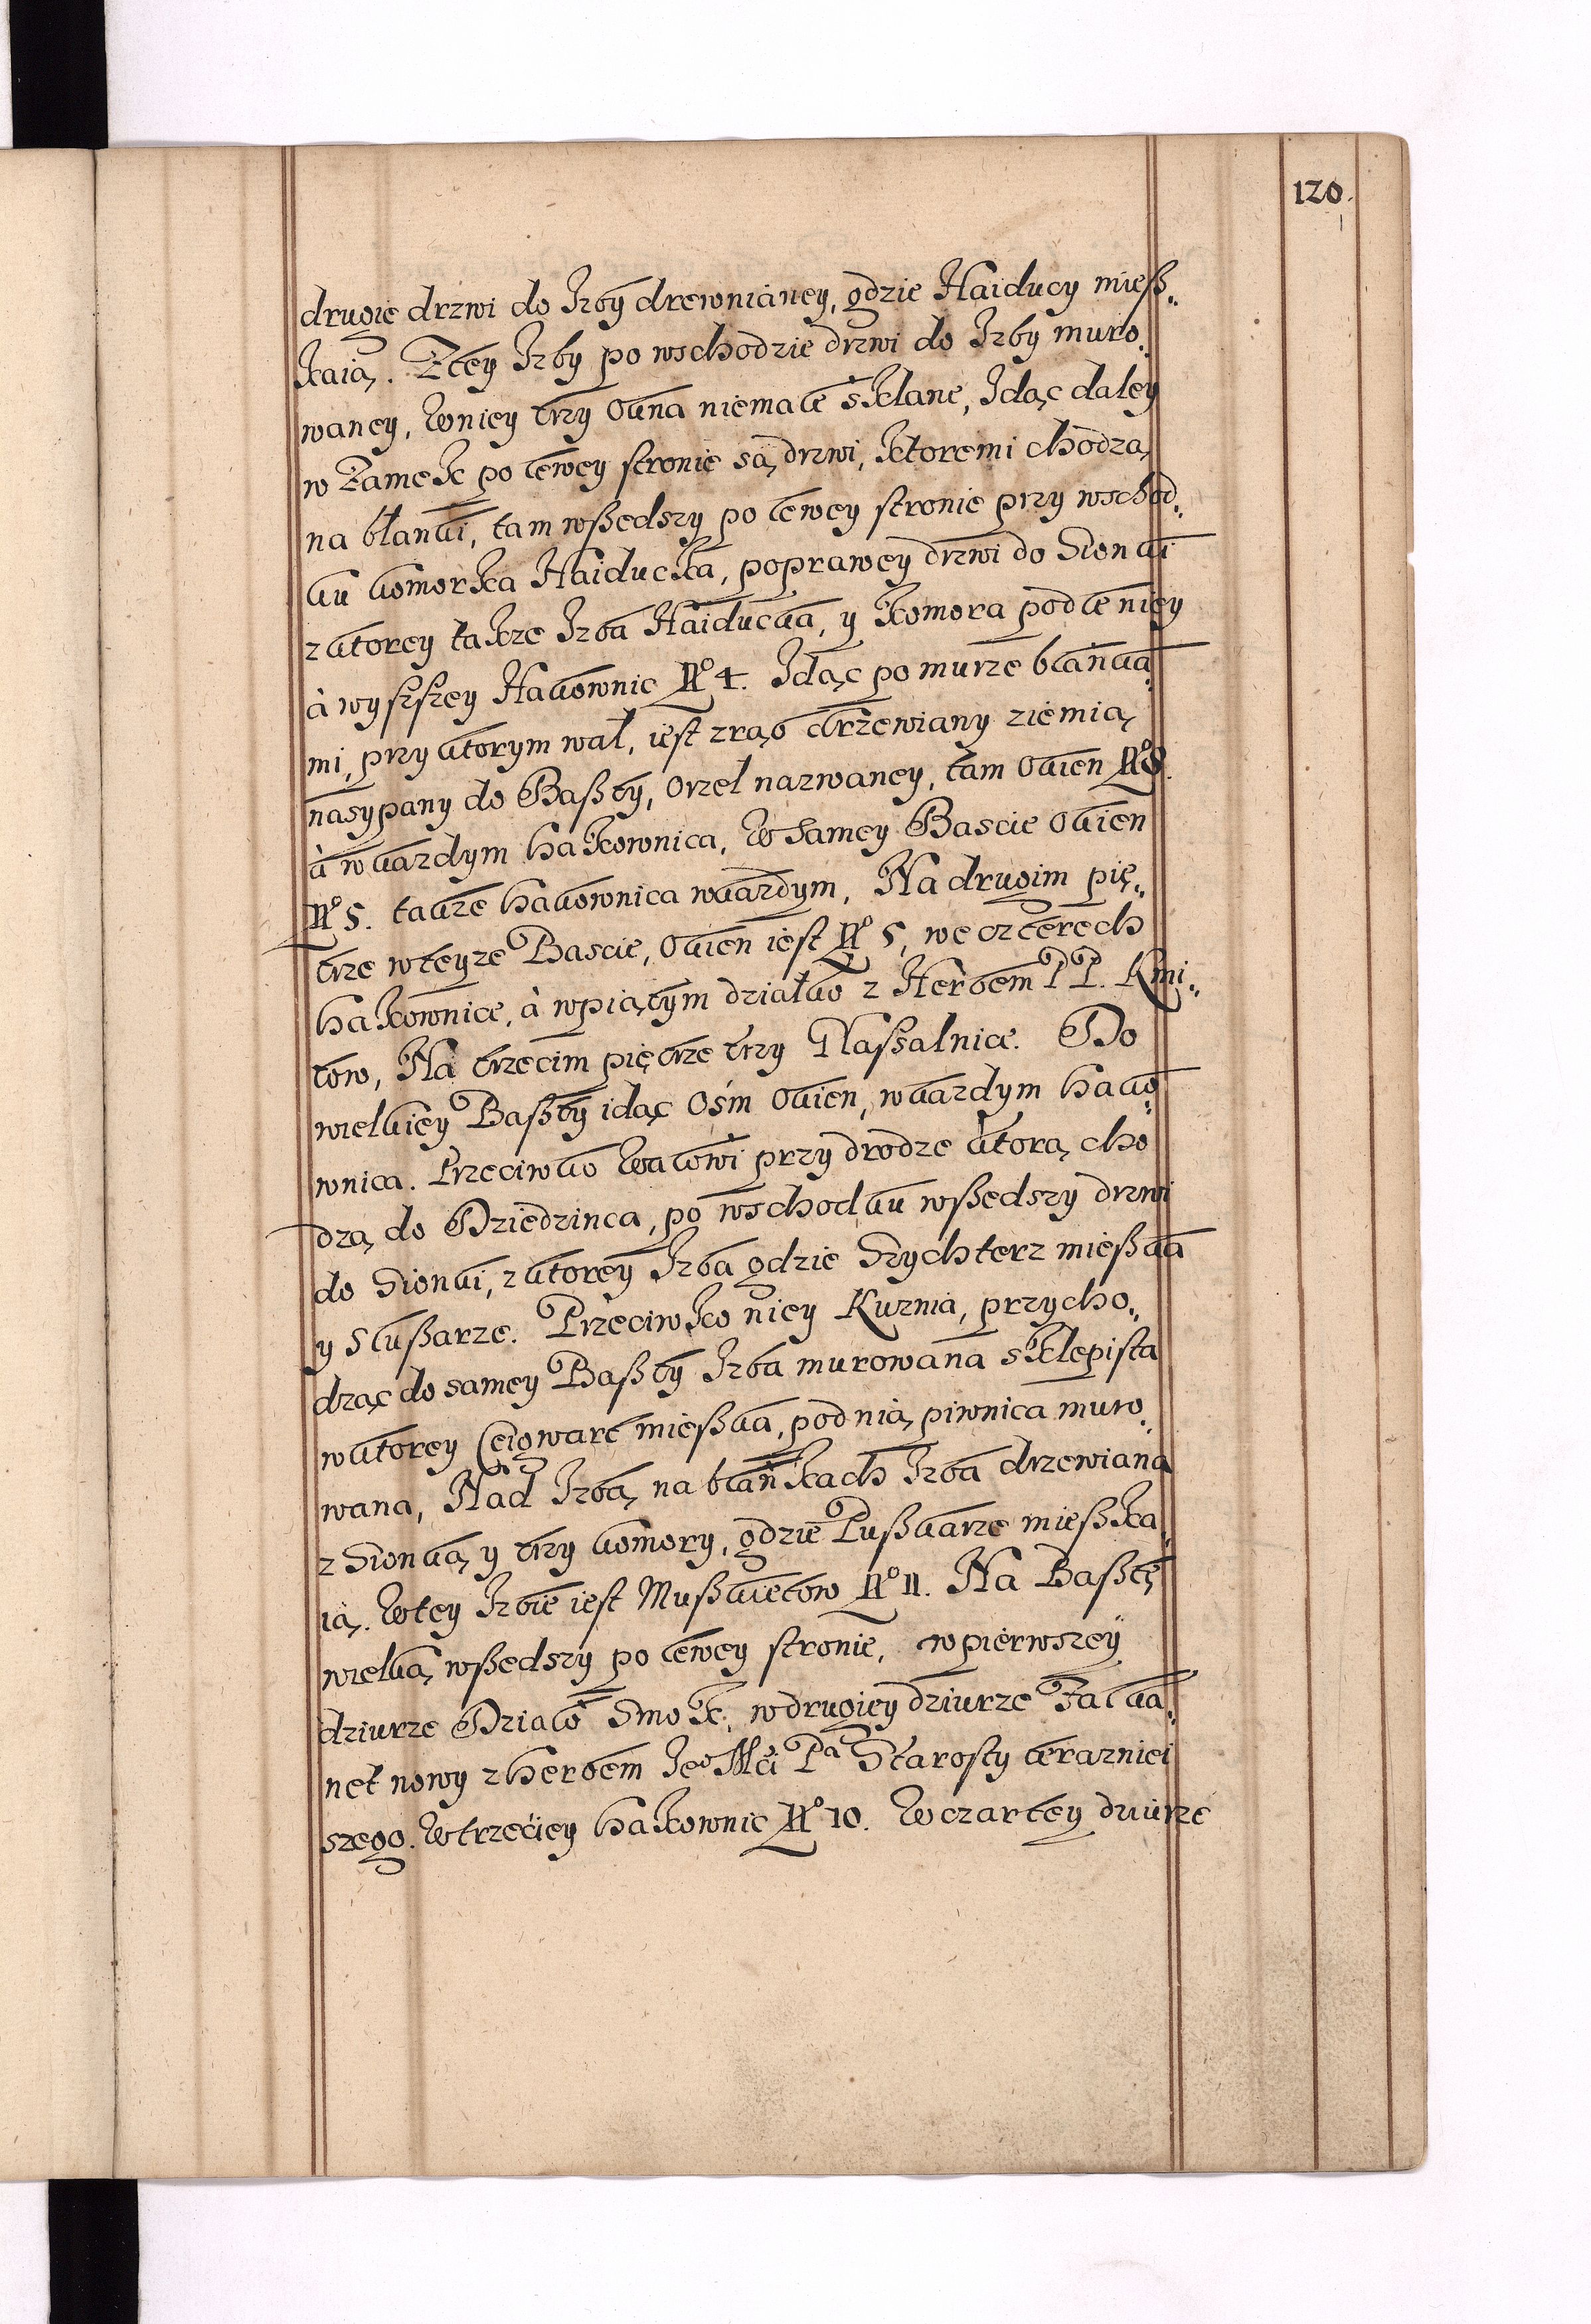 120.
drugie drzwi do Izby drewnianey, gdzie Haiducy miesz„
kaią. Z tey Izby po wschodzie drzwi do Izby muro„
waney, W niey trzy okna niemałe sklane, Idąc daley
w Zamek po lewey stronie są drzwi, ktoremi chodzą
na błanki, tam wszedszy po lewey stronie przy wschod„
ku komorka Haiducka, po prawey drzwi do Sionki
z ktorey także Izba Haiducka, y komora podle niey
à wyszszey Hakownic No 4. Idąc po murze błanka„
mi, przy ktorym wał, iest zrąb drzewiany ziemią
nasypany do Baszty, Orzeł nazwaney, tam Okien No 8.
à w każdym hakownica, W samey Bascie Okien
No 5. także hakownica w każdym, Na drugim pię„
trze w teyże Bascie, Okien iest No 5, we czterech
hakownice, à w piątym działko z Herbem PP. Kmi„
tow, Na trzecim piętrze trzy Naszalnice. Do
wielkiey Baszty idąc Ośm Okien, w każdym hako„
wnica. Przeciwko Wałowi przy drodze ktorą cho
dzą do Dziedzinca, po wschodku wszedszy drzwi
do Sionki, z ktorey Izba gdzie Szychterz mieszka
y Slusarze. Przeciwko niey Kuznia, przycho„
dząc do samey Baszty Izba murowana sklepista
w ktorey Ceigwart mieszka, pod nią piwnica muro„
wana, Nad Izbą na błankach Izba drzewiana
z Sionką y trzy komory, gdzie Puszkarze mieszka„
ią. W tey Izbie iest Muszkietow No 11. Na Basztę
wielką wszedszy po lewey stronie, w pierwszey
dziurze Działo Smok, w drugiey dziurze Falka„
net nowy z herbem Jeo Mci Pa Starosty teraznieï
szego. W trzeciey hakownic No 10. W czwartey dziurze